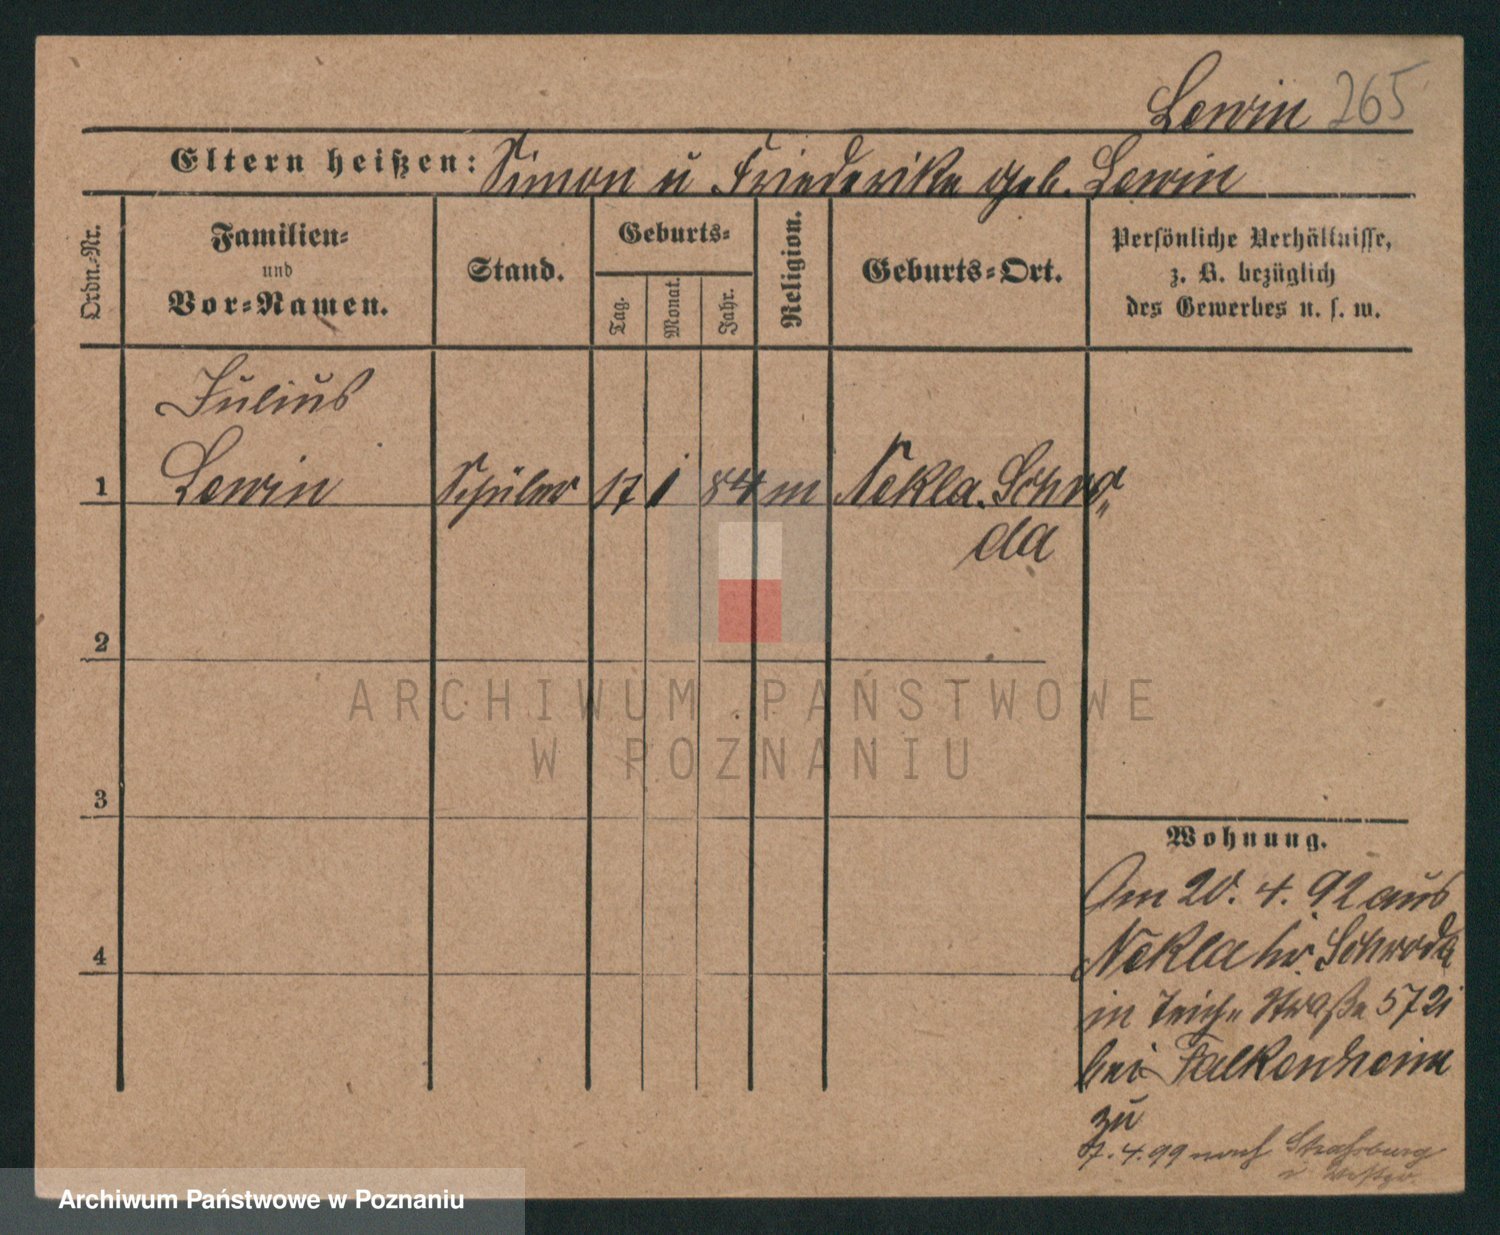 Lewin 265
Eltern heißen: Simon u Friederike geb. Lewin
Ordn.-Nr.
Familien-
und
Vor-Namen.
Stand.
Geburts-
Tag.
Monat.
Jahr.
Religion.
Geburts-Ort.
Persönliche Verhältnisse,
z. B. bezüglich
des Gewerbes u. s. w.
Julius
1 Lewin Schüler 17 1 84 m Nekla. Schro„
da
2
3
4
ARCHIWUM PAŃSTWOWE
W POZNANIU
Wohnung.
Am 20. 4. 92 aus
Nekla Kr. Schroda
in Teich Straße 5
bei Falkenheim
zu
7. 4. 99 nach Strasburg
Archiwum Państwowe w Poznaniu